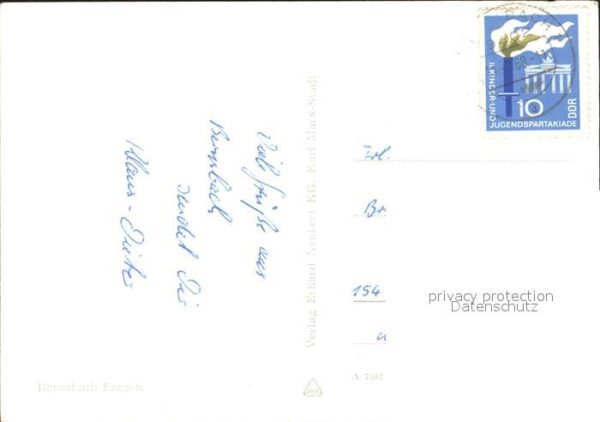 Viele Grüße aus
Bernsbach
sendet Dir
Klaus-Dieter
Bernsbach Erzgeb.
Verlag Erhard Neubert KG, Karl-Marx-Stadt
II. KINDER-UND
JUGENDSPARTAKIADE
10
DDR
Frl.
Br
154
privacy protection
Datenschutz